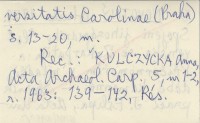 versitatis Carolinae (Praha)
s. 13-20, m.
Rec.: KULCZYCKA Anna,
Acta Archaeol. Carp. 5, nr 1-2,
r. 1963: 139-142, Rés.